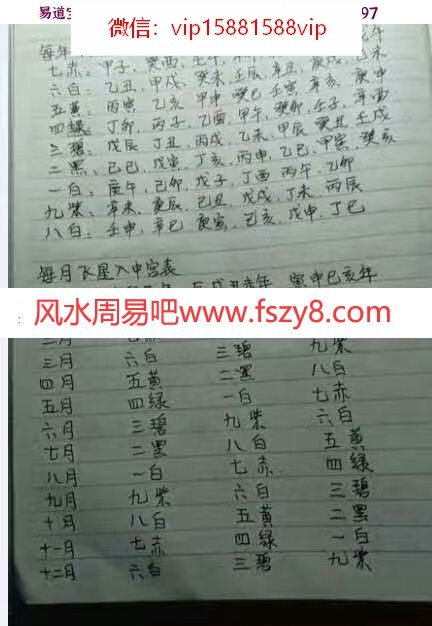 易道
97
微信：vip15881588vip
每年
七赤：甲子，癸酉，壬午，
六白：乙丑，甲戌，癸未，壬辰，辛丑，庚戌，己未
五黄：丙寅，乙亥，甲申，癸巳，壬寅，辛亥，庚申
四綠：丁卯，丙子，乙酉，甲午，癸卯，壬子，辛酉
三碧：戊辰，丁丑，丙戌，乙未，甲辰，癸丑，壬戌
二黑：己巳，戊寅，丁亥，丙申，乙巳，甲寅，癸亥
一白：庚午，己卯，戊子，丁酉，丙午，乙卯
九紫：辛未，庚辰，己丑，戊戌，丁未，丙辰
八白：壬申，辛巳，庚寅，己亥，戊申，丁巳
每月飞星入中宫表
辰戌丑未年 寅申巳亥年
风水周易吧www.fszy8.com
三月 六白 三碧 九紫
四月 五黄 二黑 八白
五月 四綠 一白 七赤
六月 三碧 九紫 六白
七月 二黑 八白 五黄
八月 一白 七赤 四綠
九月 九紫 六白 三碧
十月 八白 五黄 二黑
十一月 七赤 四綠 一白
十二月 六白 三碧 九紫